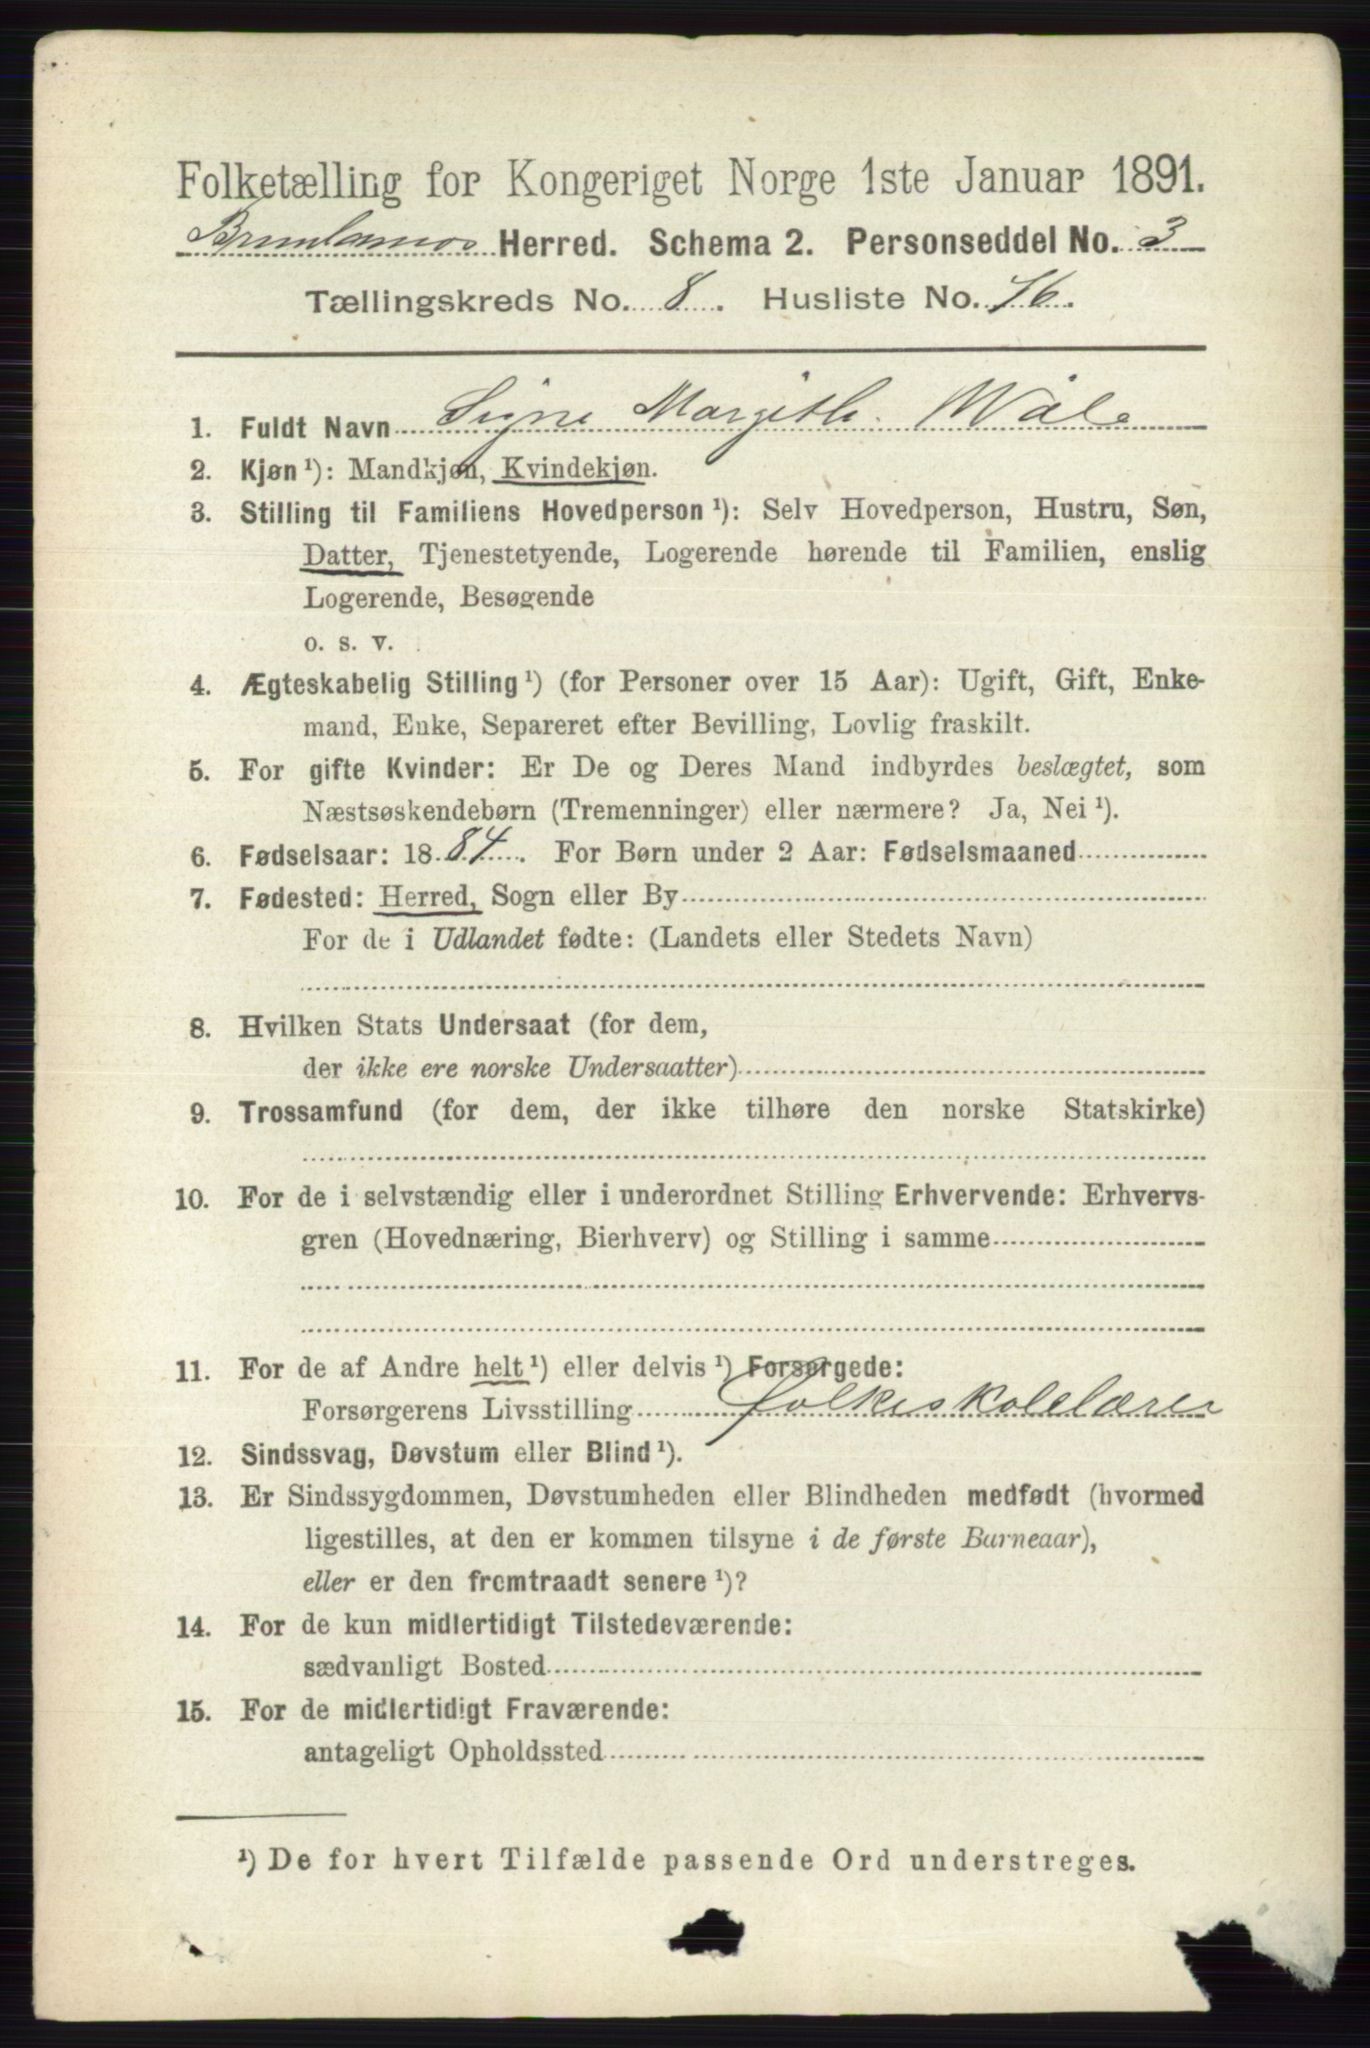 Folketælling for Kongeriget Norge 1ste Januar 1891.
Brunlanæs Herred. Schema 2. Personseddel No. 3
Tællingskreds No. 8. Husliste No. 76.
1. Fuldt Navn Signe Margith Wåle
2. Kjøn ¹): Mandkjøn, Kvindekjøn.
3. Stilling til Familiens Hovedperson ¹): Selv Hovedperson, Hustru, Søn,
Datter, Tjenestetyende, Logerende hørende til Familien, enslig
Logerende, Besøgende
o. s. v.
4. Ægteskabelig Stilling ¹) (for Personer over 15 Aar): Ugift, Gift, Enke-
mand, Enke, Separeret efter Bevilling, Lovlig fraskilt.
5. For gifte Kvinder: Er De og Deres Mand indbyrdes beslægtet, som
Næstsøskendebørn (Tremenninger) eller nærmere? Ja, Nei ¹).
6. Fødselsaar: 1884. For Børn under 2 Aar: Fødselsmaaned
7. Fødested: Herred, Sogn eller By
For de i Udlandet fødte: (Landets eller Stedets Navn)
8. Hvilken Stats Undersaat (for dem,
der ikke ere norske Undersaatter)
9. Trossamfund (for dem, der ikke tilhøre den norske Statskirke)
10. For de i selvstændig eller i underordnet Stilling Erhvervende: Erhvervs-
gren (Hovednæring, Bierhverv) og Stilling i samme
11. For de af Andre helt ¹) eller delvis ¹) Forsørgede:
Forsørgerens Livsstilling folkeskolelærer
12. Sindssvag, Døvstum eller Blind ¹).
13. Er Sindssygdommen, Døvstumheden eller Blindheden medfødt (hvormed
ligestilles, at den er kommen tilsyne i de første Barneaar),
eller er den fremtraadt senere ¹)?
14. For de kun midlertidigt Tilstedeværende:
sædvanligt Bosted
15. For de midlertidigt Fraværende:
antageligt Opholdssted
¹) De for hvert Tilfælde passende Ord understreges.